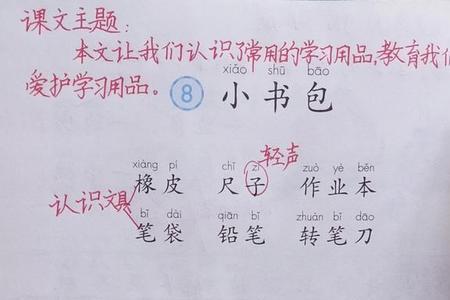 课文主题：
本文让我们认识了常用的学习用品，教育我们
爱护学习用品。
xiǎo shū bāo
8 小书包
轻声
xiàng pí chǐ zi zuò yè běn
橡皮 尺子 作业本
认识文具
bǐ dài qiān bǐ zhuàn bǐ dāo
笔袋 铅笔 转笔刀